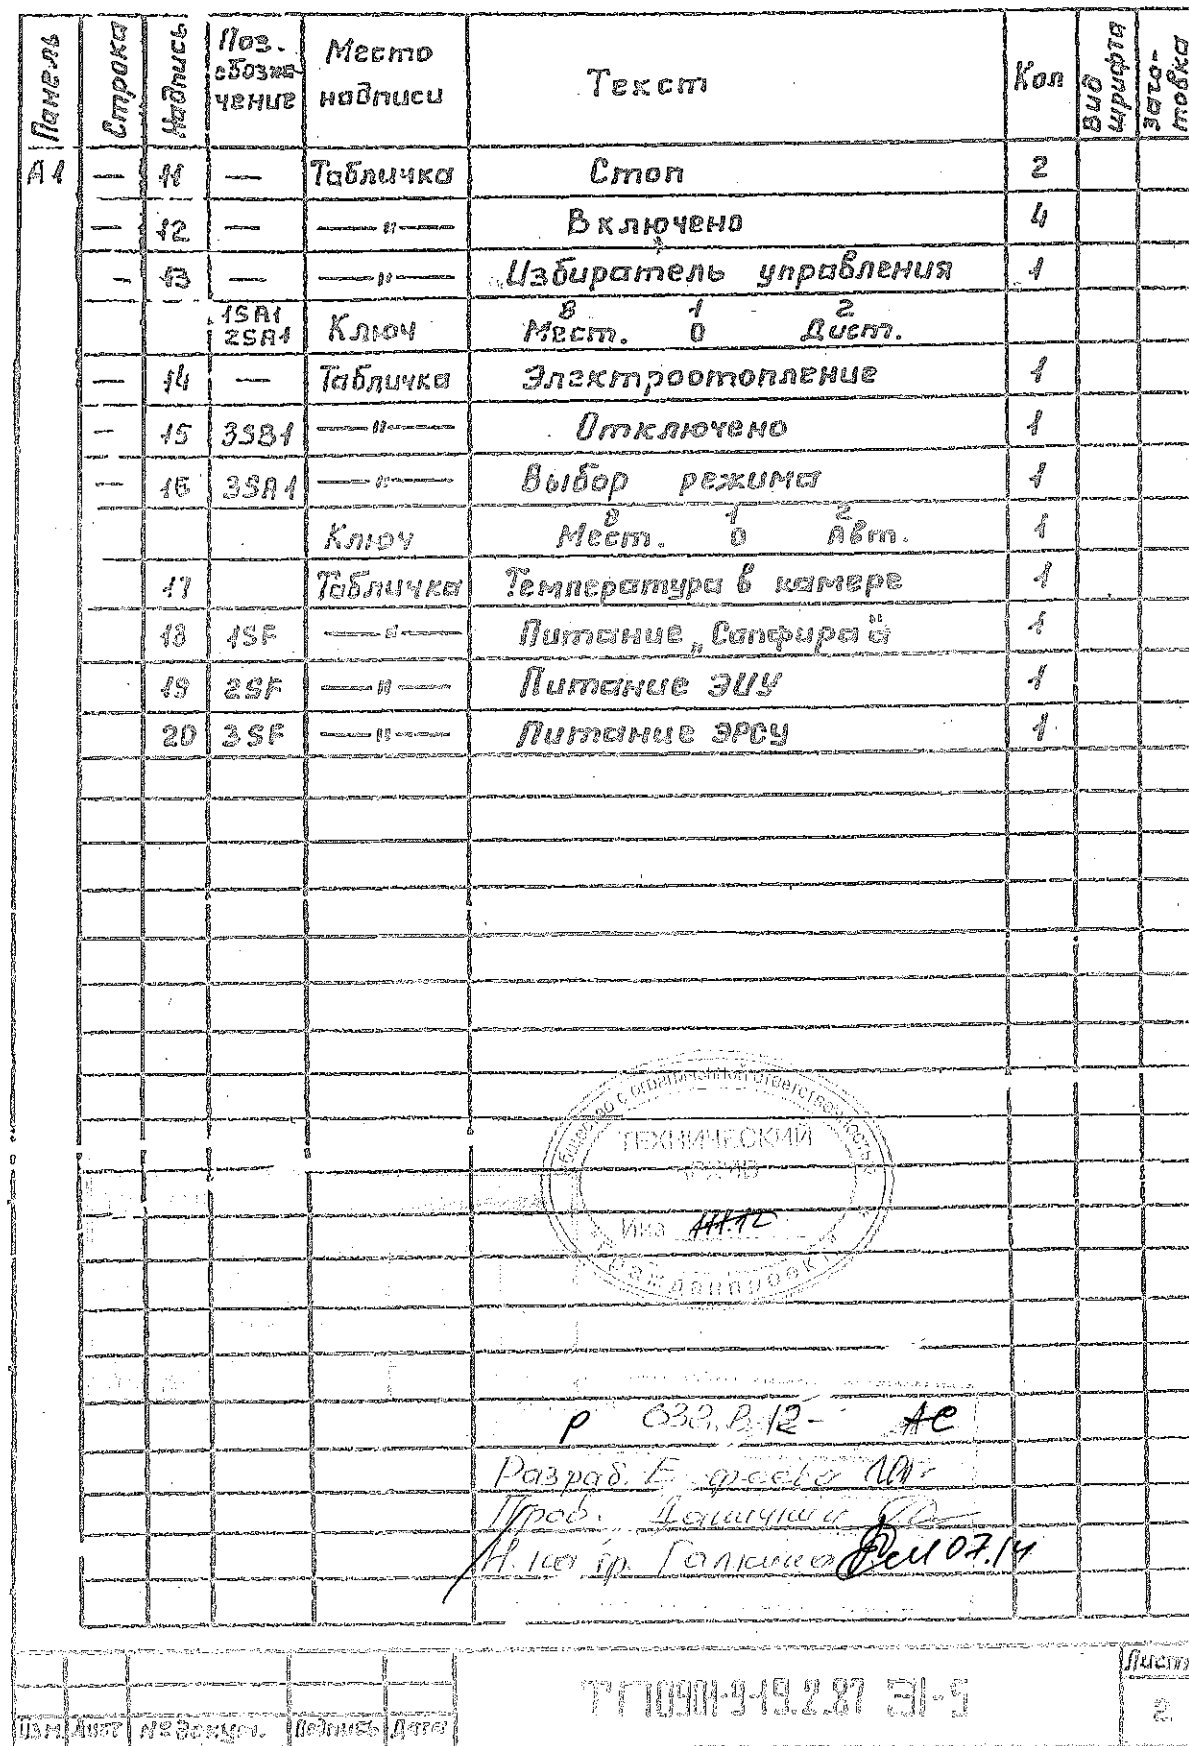 Панель Строка Надпись Поз. обозначение Место надписи Текст Кол Вид шрифта Заготовка
А1 — 11 — Табличка Стоп 2
— 12 — —"— Включено 4
— 13 — —"— Избиратель управления 1
1SA1 2SA1 Ключ 8 Мест. 1 0 2 Дист.
— 14 — Табличка Электроотопление 1
— 15 3SB1 —"— Отключено 1
— 16 3SA1 —"— Выбор режима 1
Ключ 8 Мест. 1 0 2 Авт. 1
17 Табличка Температура в камере 1
18 1SF —"— Питание „Сапфира" 1
19 2SF —"— Питание ЭИУ 1
20 3SF —"— Питание ЭРСУ 1
Общество с ограниченной ответственностью
ТЕХНИЧЕСКИЙ
АРХИВ
Инв
Гражданпроект
Р АС
Разраб.
Пров.
Галкина 07.14
ТП 0901-9-19.2.87 Э1-5
Лист
2
Изм. Лист № докум. Подпись Дата